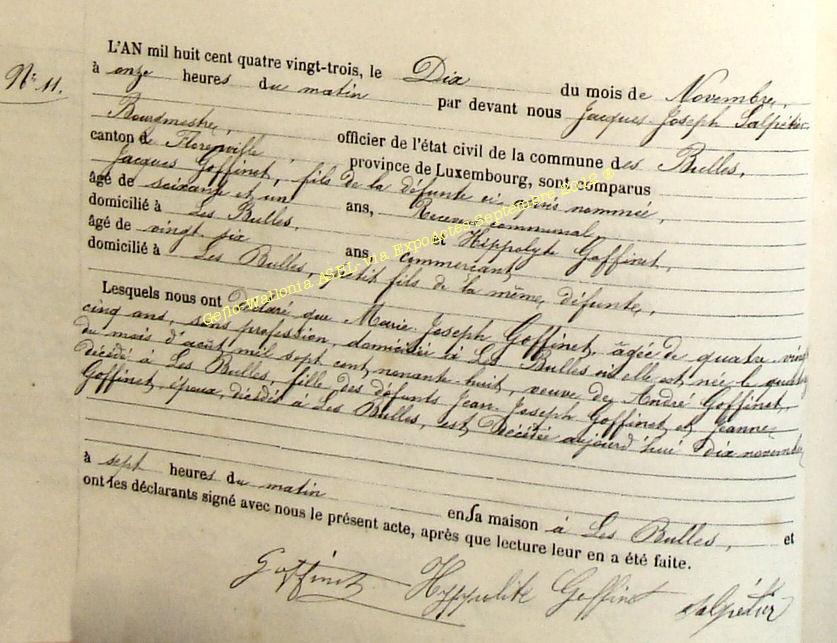 N° 11.
L'AN mil huit cent quatre vingt-trois, le Dix du mois de Novembre,
à onze heures du matin par devant nous Jacques Joseph Salpétier
Bourgmestre, officier de l'état civil de la commune des Bulles,
canton de Florenville, province de Luxembourg, sont comparus
Jacques Goffinet, fils de la défunte ci-après nommée,
âgé de soixante et un ans, Receveur communal,
domicilié à Les Bulles, et Hippolyte Goffinet,
âgé de vingt six ans, commerçant
domicilié à Les Bulles, petit fils de la même défunte,
Lesquels nous ont Déclaré que Marie Joseph Goffinet, âgée de quatre-vingt
cinq ans, sans profession, domiciliée à Les Bulles où elle est née le quatre
du mois d'août mil sept cent nonante-huit, veuve de André Goffinet,
décédé à Les Bulles, fille des défunts Jean Joseph Goffinet et Jeanne
Goffinet, époux, décédés à Les Bulles, est décédée aujourd'hui dix novembre
à sept heures du matin en sa maison à Les Bulles, et
ont les déclarants signé avec nous le présent acte, après que lecture leur en a été faite.
Goffinet Hyppolite Goffinet Salpétier
Geno-Wallonia ASBL via ExpoActes Septembre 2012 ®